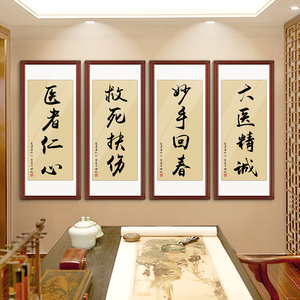 大医精诚
妙手回春
救死扶伤
医者仁心